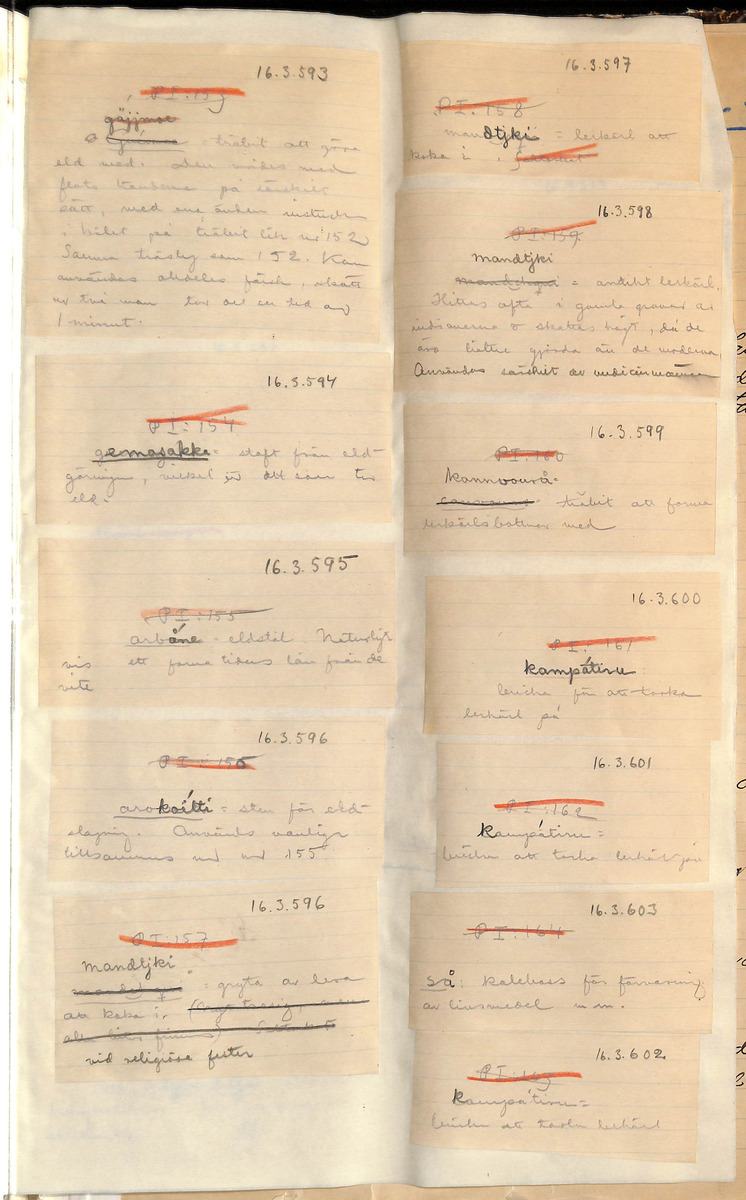 16.3.593
P I: 153
gäjjmoe
= träbit att göra
eld med. Den vrides med
flata händerna på särskilt
sätt, med ena änden instucken
i hålet på träbit lik nr 152
Samma träslag som 152. Kan
användas alldeles färsk,
nr två man tar det en tid av
1 minut.
16.3.594
P I: 154
gemasakke = skaft från eld-
göringen, vilket är det som tar
eld.
16.3.595
P I: 155
arbåne = eldstål. Naturligt-
vis ett forna tiders lån från de
vite
16.3.596
P I: 156
arokoítti = sten för eld-
slagning. Används vanligen
tillsammans med nr 155
16.3.596
P I: 157
mandtjki
= gryta av lera
att koka i.
vid religiösa fester
16.3.597
P I. 158
mandtjki = lerkärl att
koka i.
16.3.598
P I: 159
mandtjki
= antikt lerkärl.
Hittas ofta i gamla gravar av
indianerna o skattas högt, då de
äro bättre gjorda än de moderna
Användas särskilt av medicinmännen
16.3.599
P I: 160
kannvourå=
träbit att forma
lerkärlsbottnar med
16.3.600
P I: 161
kampátiru:
bricka för att torka
lerkärl på
16.3.601
P I: 162
kampátiru =
bricka att torka lerkärl på
16.3.603
P I: 164
så: kalebass för förvaring
av livsmedel m.m.
16.3.602
P I: 163
kampátiru=
bricka att torka lerkärl